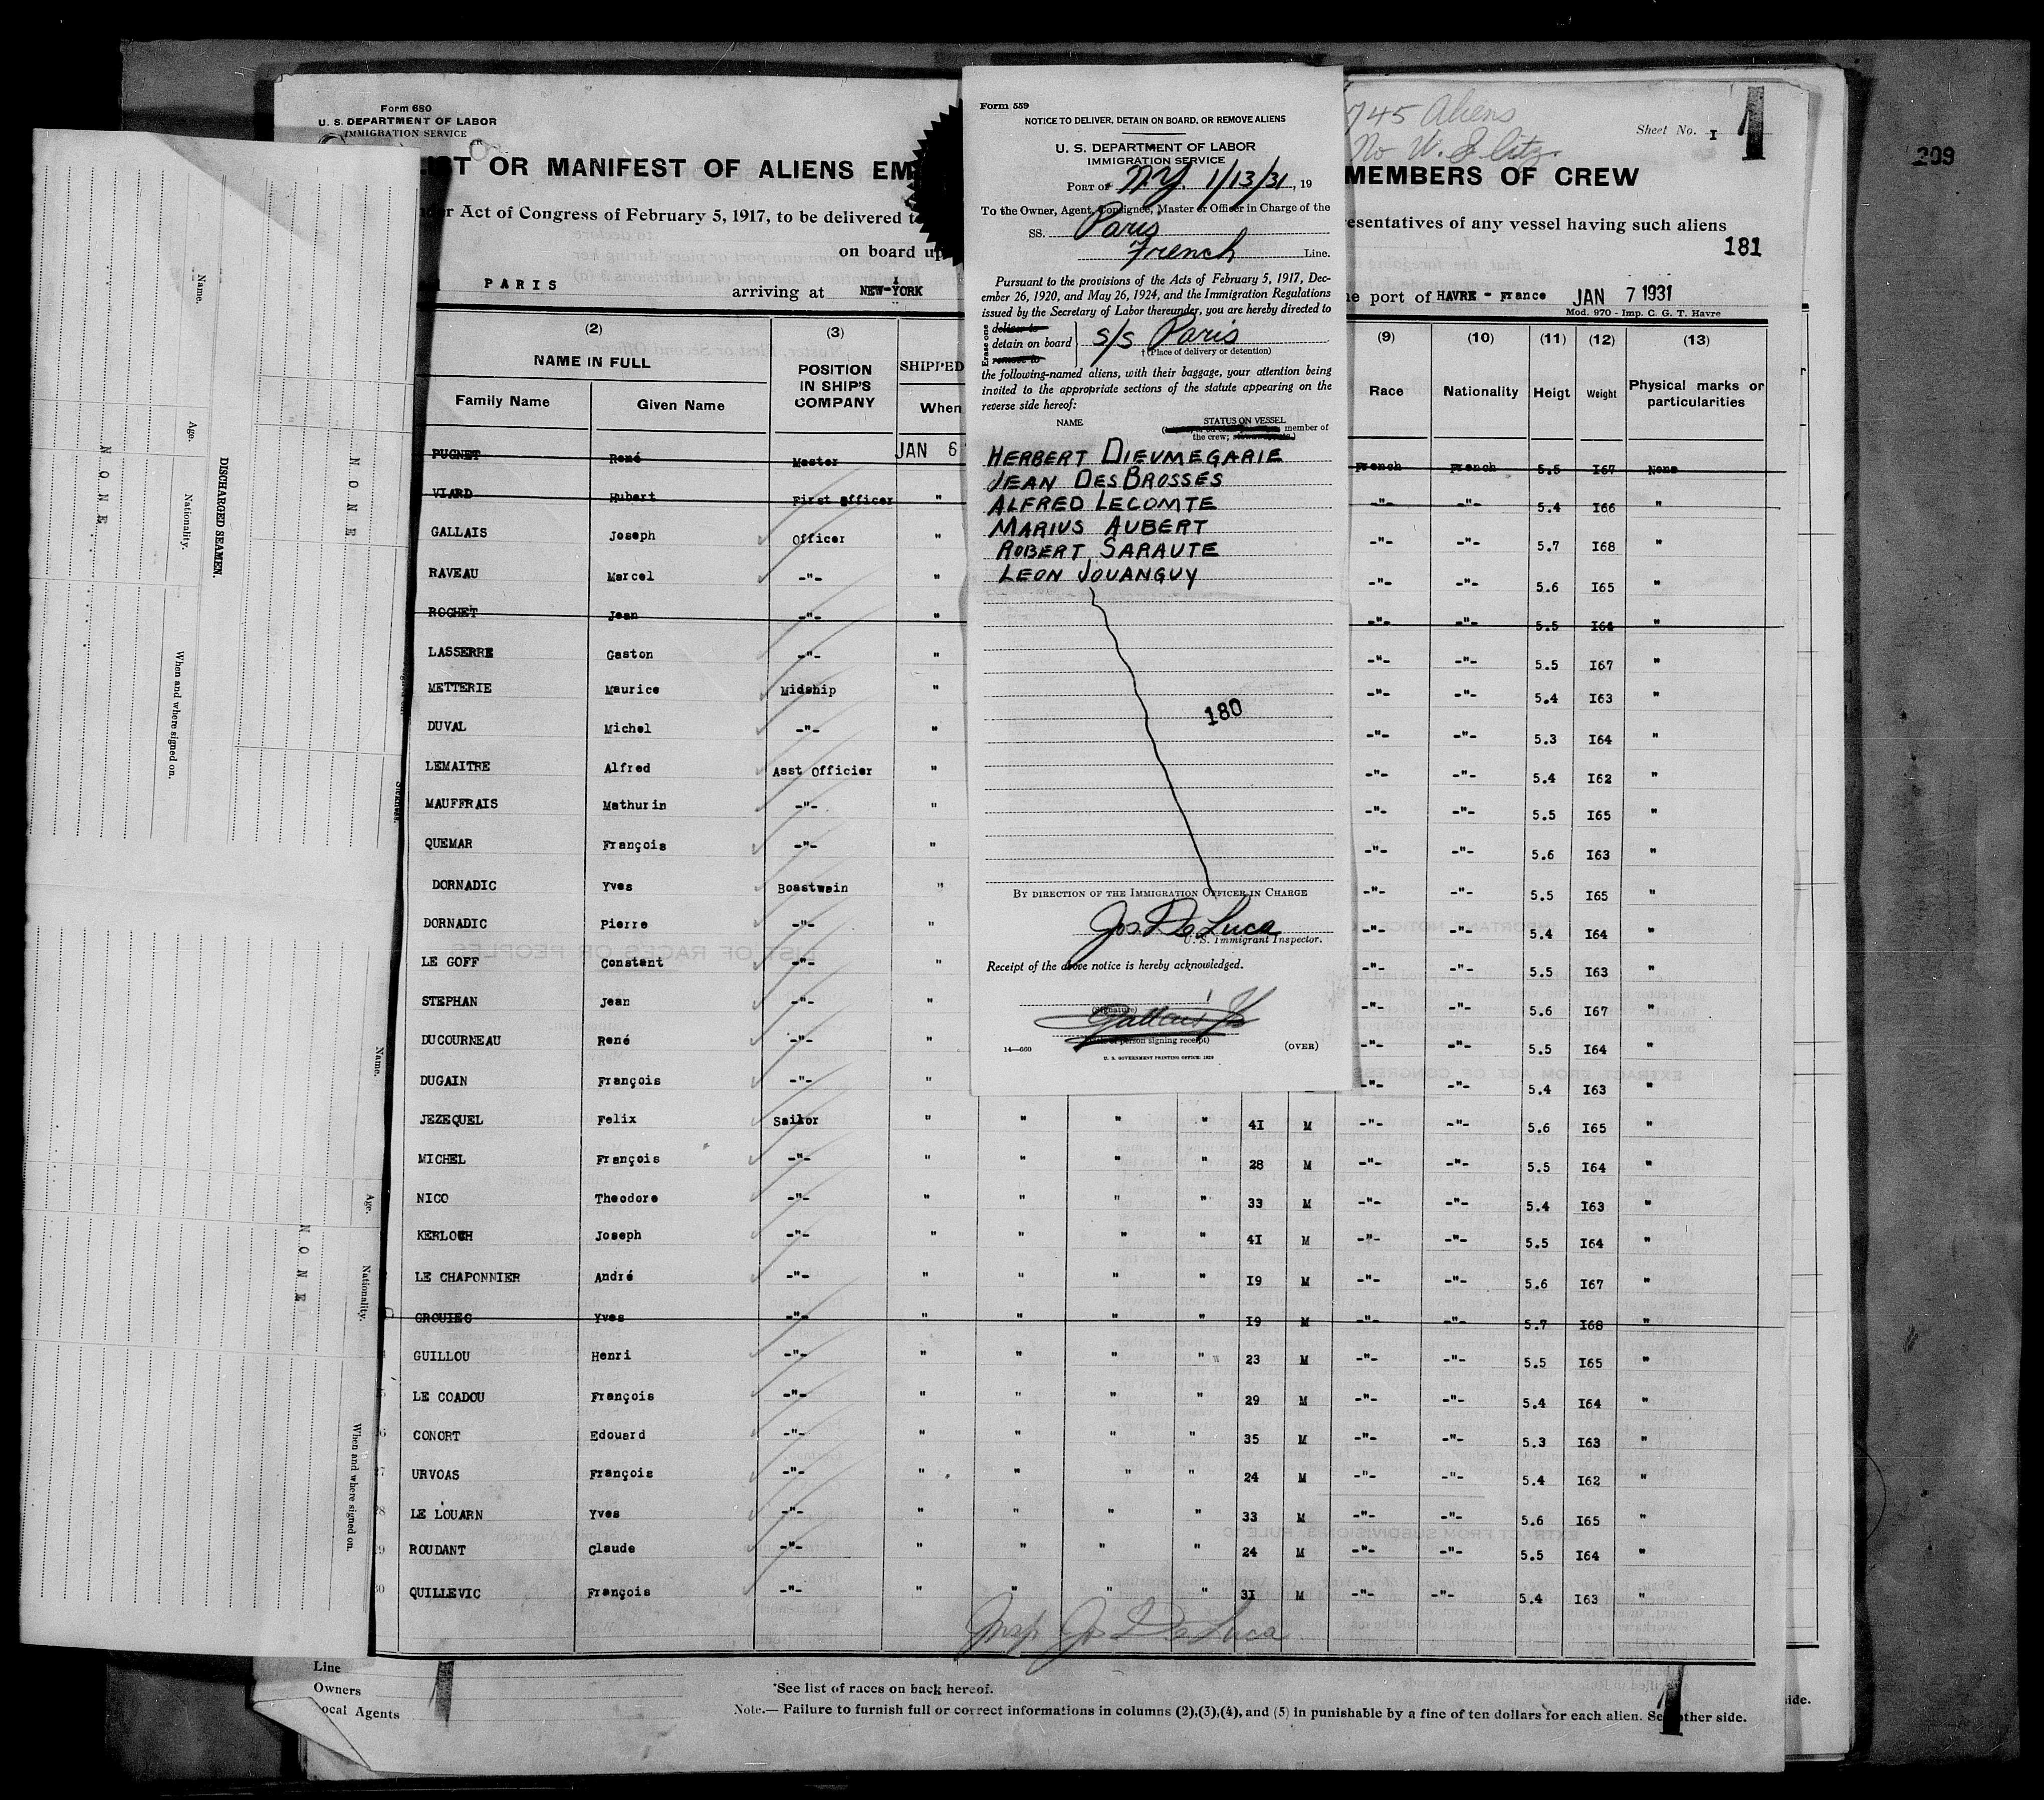 Form 680
U. S. DEPARTMENT OF LABOR
IMMIGRATION SERVICE
OR MANIFEST OF ALIENS EM
MEMBERS OF CREW
745 Aliens
No W.
Sheet No. I 1
209
Act of Congress of February 5, 1917, to be delivered t
resentatives of any vessel having such aliens
on board up
181
PARIS arriving at NEW-YORK
e port of HAVRE - France JAN 7 1931
Mod. 970 - Imp. C. G. T. Havre
(2) (3) (9) (10) (11) (12) (13)
NAME IN FULL POSITION IN SHIP'S COMPANY SHIPPED
Family Name Given Name When Race Nationality Heigt Weight Physical marks or particularities
PUGNET René Master JAN 6 French French 5.5 I67 None
VIARD Hubert First Officer " -"- -"- 5.4 I66 "
GALLAIS Joseph Officer " -"- -"- 5.7 I68 "
RAVEAU Marcel -"- " -"- -"- 5.6 I65 "
ROCHET Jean -"- " -"- -"- 5.5 I64 "
LASSERRE Gaston -"- " -"- -"- 5.5 I67 "
METTERIE Maurice Midship " -"- -"- 5.4 I63 "
DUVAL Michel -"- " -"- -"- 5.3 I64 "
LEMAITRE Alfred Asst Officier " -"- -"- 5.4 I62 "
MAUFFRAIS Mathurin -"- " -"- -"- 5.5 I65 "
QUEMAR François -"- " -"- -"- 5.6 I63 "
DORNADIC Yves Boastwein " -"- -"- 5.5 I65 "
DORNADIC Pierre -"- " -"- -"- 5.4 I64 "
LE GOFF Constant -"- " -"- -"- 5.5 I63 "
STEPHAN Jean -"- " -"- -"- 5.6 I67 "
DUCOURNEAU René -"- " -"- -"- 5.5 I64 "
DUGAIN François -"- " -"- -"- 5.4 I63 "
JEZEQUEL Felix Sailor " " " " 4I M -"- -"- 5.6 I65 "
MICHEL François -"- " " " " 28 M -"- -"- 5.5 I64 "
NICO Theodore -"- " " " " 33 M -"- -"- 5.4 I63 "
KERLOCH Joseph -"- " " " " 4I M -"- -"- 5.5 I64 "
LE CHAPONNIER André -"- " " " " I9 M -"- -"- 5.6 I67 "
GROUIEC Yves -"- " " " " I9 M -"- -"- 5.7 I68 "
GUILLOU Henri -"- " " " " 23 M -"- -"- 5.5 I65 "
LE COADOU François -"- " " " " 29 M -"- -"- 5.4 I64 "
CONORT Edouard -"- " " " " 35 M -"- -"- 5.3 I63 "
URVOAS François -"- " " " " 24 M -"- -"- 5.4 I62 "
LE LOUARN Yves -"- " " " " 33 M -"- -"- 5.6 I65 "
ROUDANT Claude -"- " " " " 24 M -"- -"- 5.5 I64 "
QUILLEVIC François -"- " " " " 3I M -"- -"- 5.4 I63 "
Insp Jos De Luca
Line
Owners
ocal Agents
*See list of races on back hereof.
Note.— Failure to furnish full or correct informations in columns (2),(3),(4), and (5) in punishable by a fine of ten dollars for each alien. See other side.
ide.
Form 559
NOTICE TO DELIVER, DETAIN ON BOARD, OR REMOVE ALIENS
U. S. DEPARTMENT OF LABOR
IMMIGRATION SERVICE
PORT OF N.Y. 1/13/31, 19
To the Owner, Agent, Consignee, Master or Officer in Charge of the
SS. Paris
French Line.
Pursuant to the provisions of the Acts of February 5, 1917, Dec-
ember 26, 1920, and May 26, 1924, and the Immigration Regulations
issued by the Secretary of Labor thereunder, you are hereby directed to
Erase one
deliver to
detain on board S/S Paris
remove to
† (Place of delivery or detention)
the following-named aliens, with their baggage, your attention being
invited to the appropriate sections of the statute appearing on the
reverse side hereof:
NAME STATUS ON VESSEL
member of
the crew;
HERBERT DIEUMEGARIE
JEAN DESBROSSES
ALFRED LECOMTE
MARIUS AUBERT
ROBERT SARAUTE
LEON JOUANGUY
180
BY DIRECTION OF THE IMMIGRATION OFFICER IN CHARGE
Jos. De Luca
U. S. Immigrant Inspector.
Receipt of the above notice is hereby acknowledged.
(Signature)
(Title of person signing receipt)
14—660 (OVER)
U. S. GOVERNMENT PRINTING OFFICE: 1929
DISCHARGED SEAMEN.
Name. Age. Nationality. When and where signed on.
NONE
NONE
Name. Age. Nationality. When and where signed on.
NONE